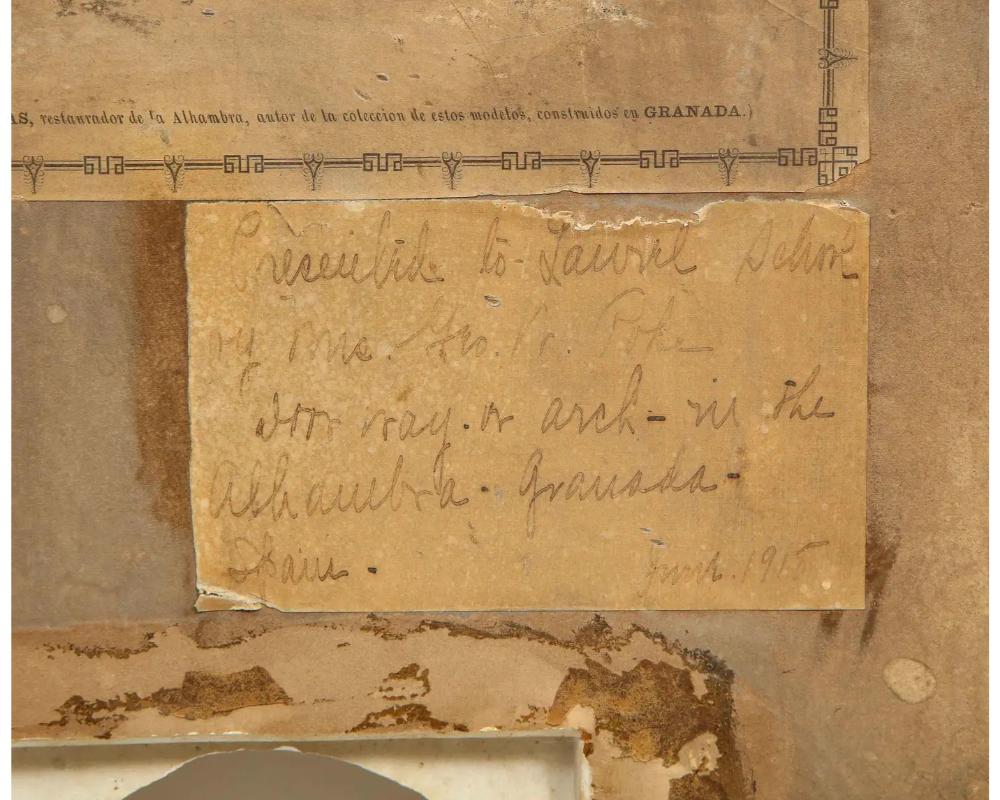 AS, restaurador de la Alhambra, autor de la coleccion de estos modelos, construidos en GRANADA.)
Presented to Laurel School
by Mrs. Geo. N.
door way. or arch - in the
Alhambra - Granada -
Spain. 1915